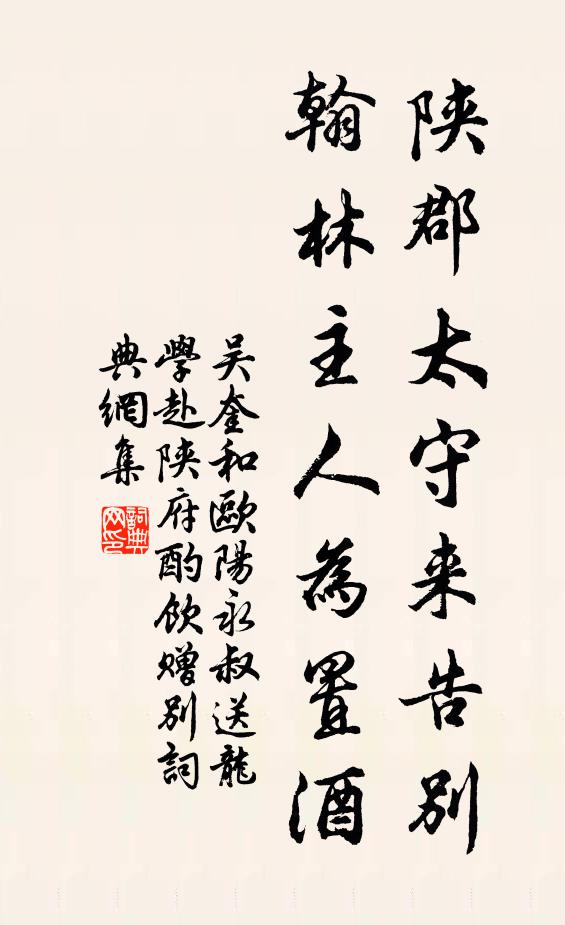 陝郡太守来告別
翰林主人為置酒
吴奎和歐陽永叔送龍
學赴陝府酌飲贈别詞
典網集
詞典
网印